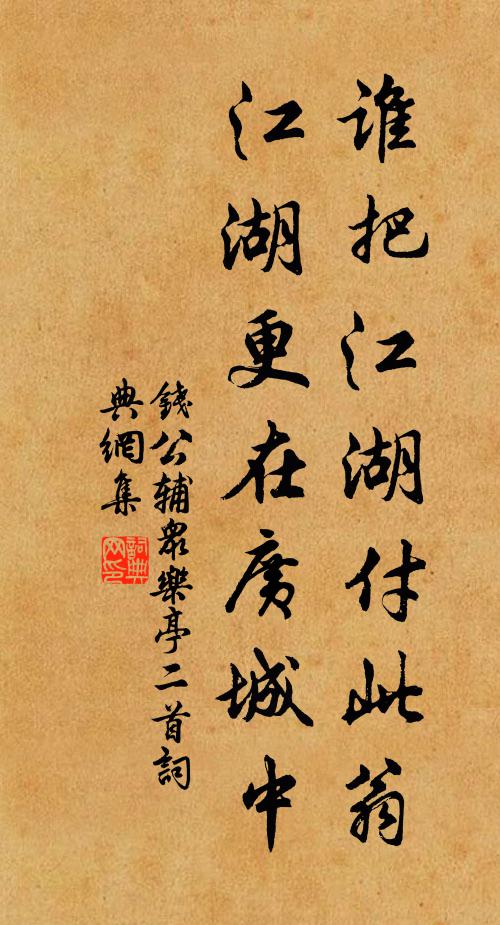 誰把江湖付此翁
江湖更在廣城中
錢公輔眾樂亭二首詞
典網集
詞典
网印